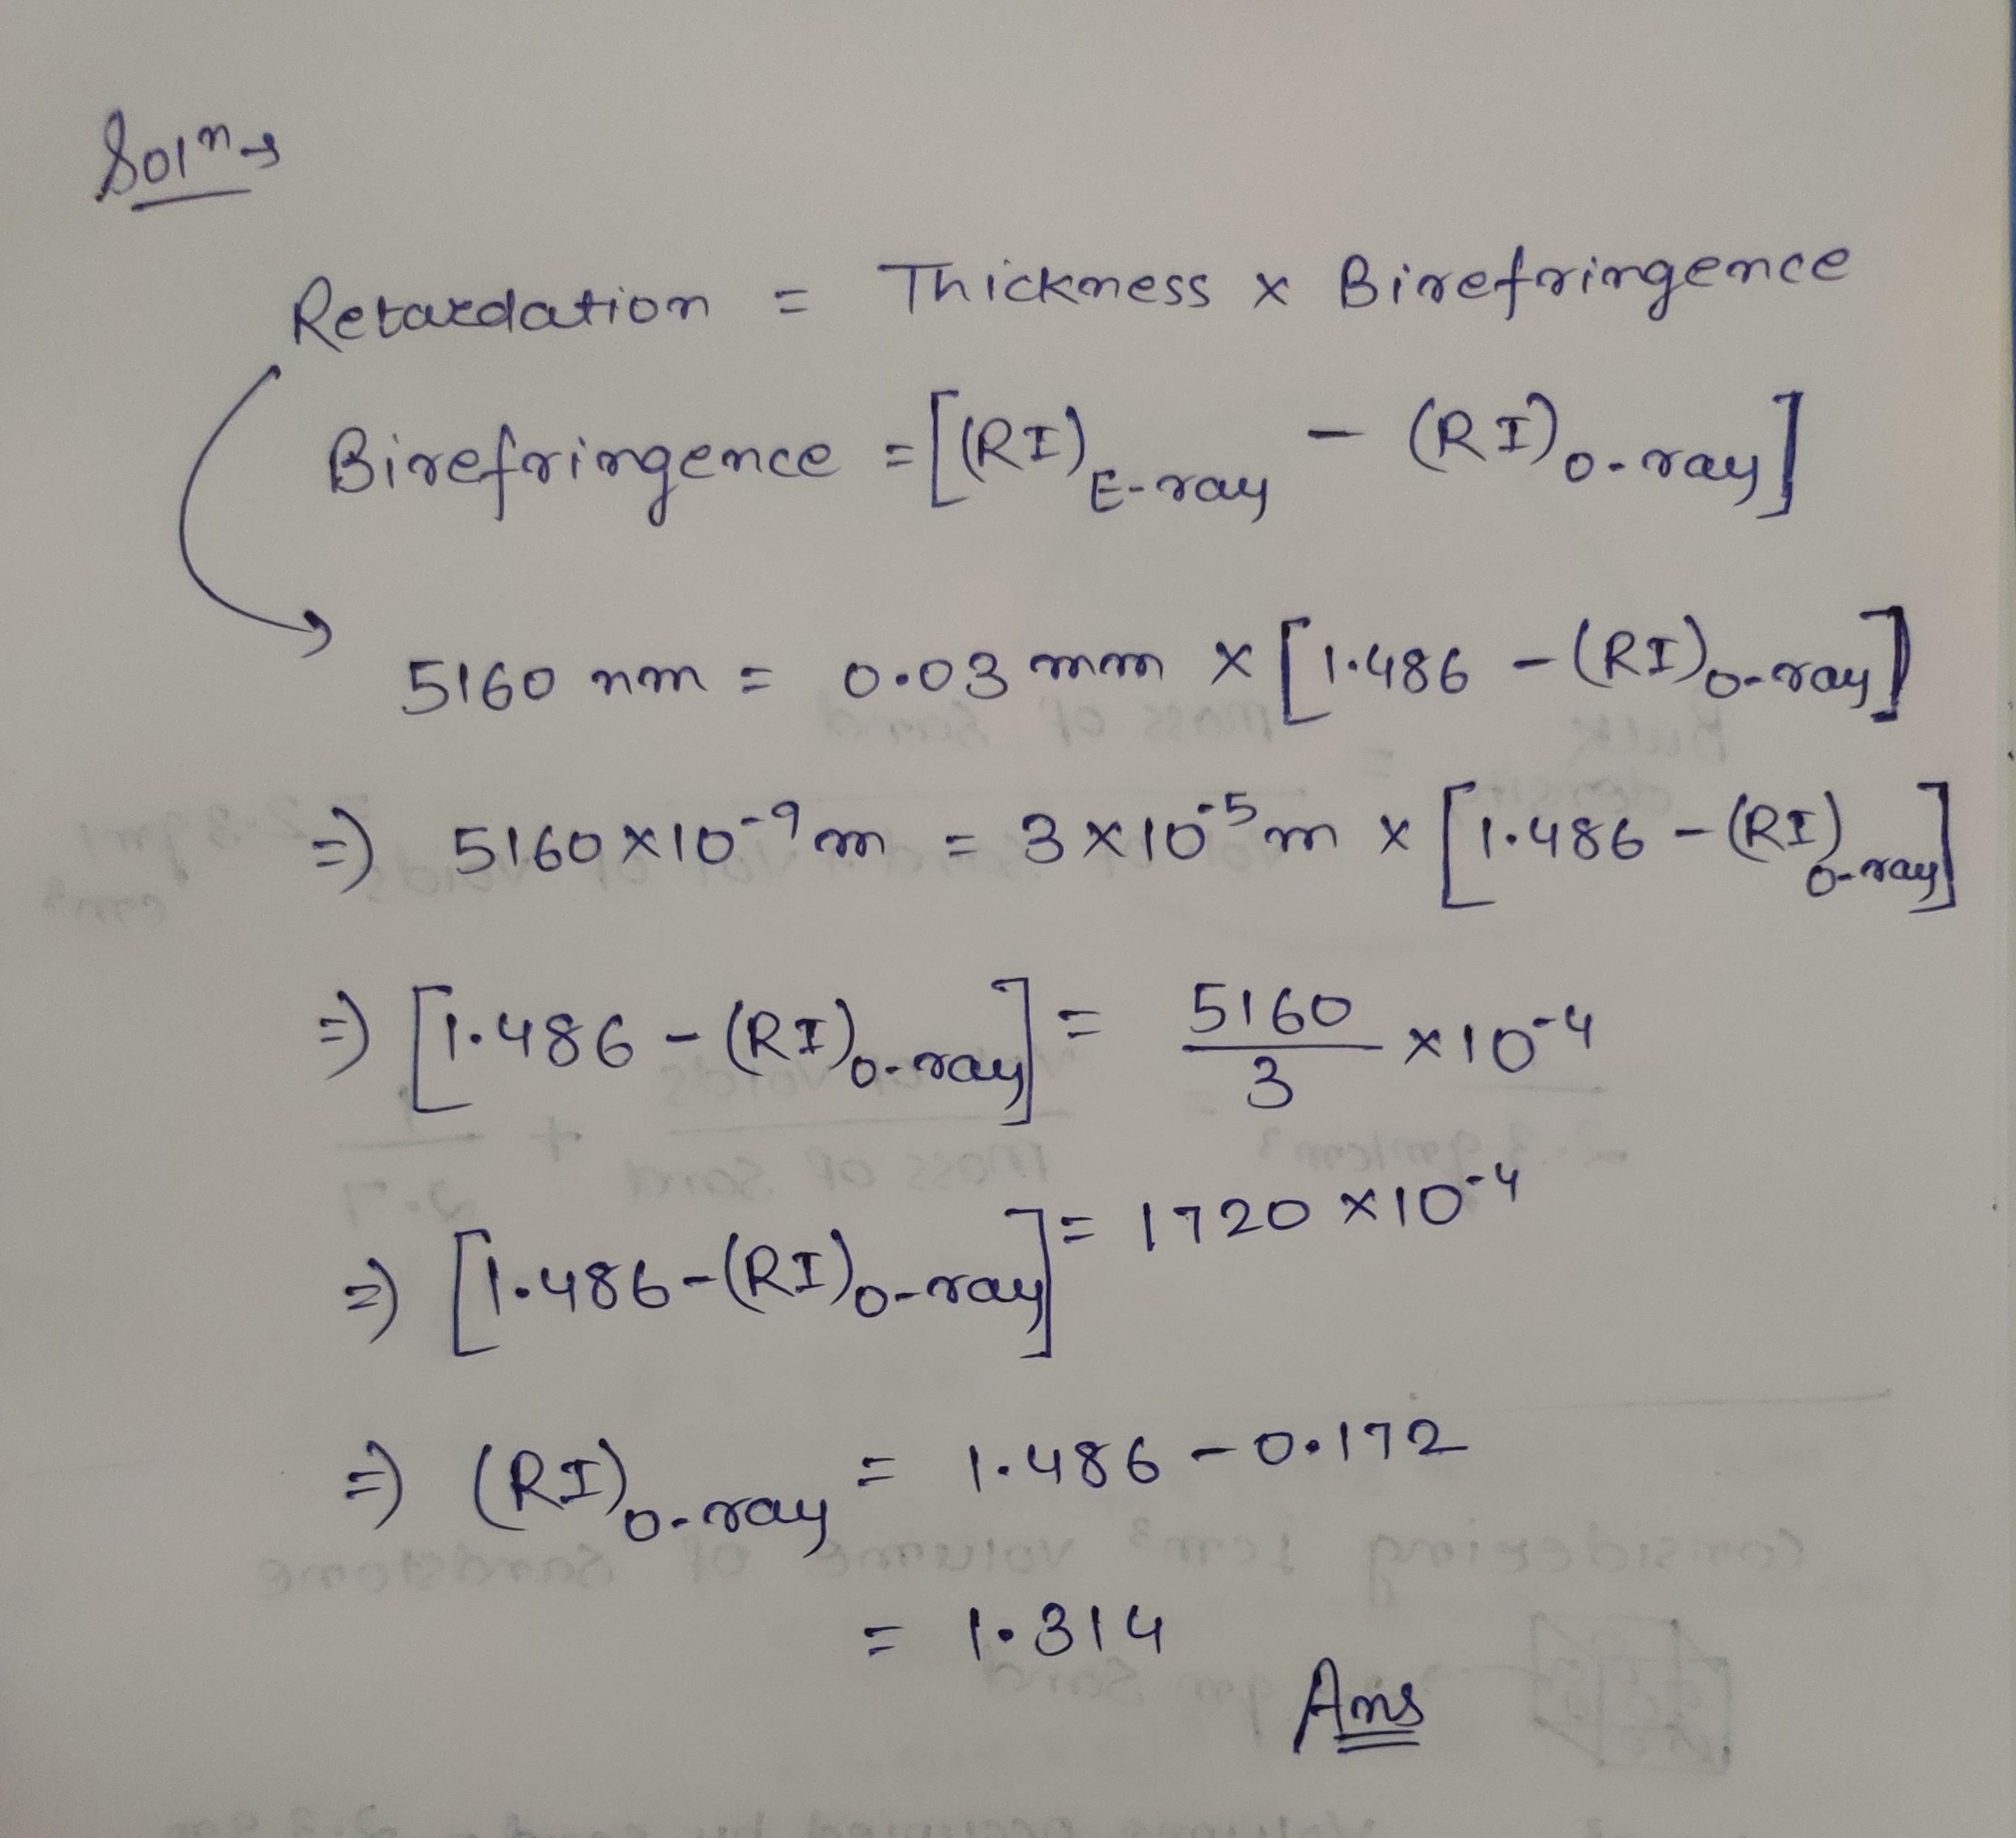 Solⁿ→
Retardation = Thickness x Birefringence
Birefringence = [(RI)E-ray - (RI)O-ray]
5160 nm = 0.03 mm x [1.486 - (RI)O-ray]
⇒ 5160 x 10⁻⁹ m = 3 x 10⁻⁵ m x [1.486 - (RI)O-ray]
⇒ [1.486 - (RI)O-ray] = 5160/3 x 10⁻⁴
⇒ [1.486 - (RI)O-ray] = 1720 x 10⁻⁴
⇒ (RI)O-ray = 1.486 - 0.172
= 1.314
Ans